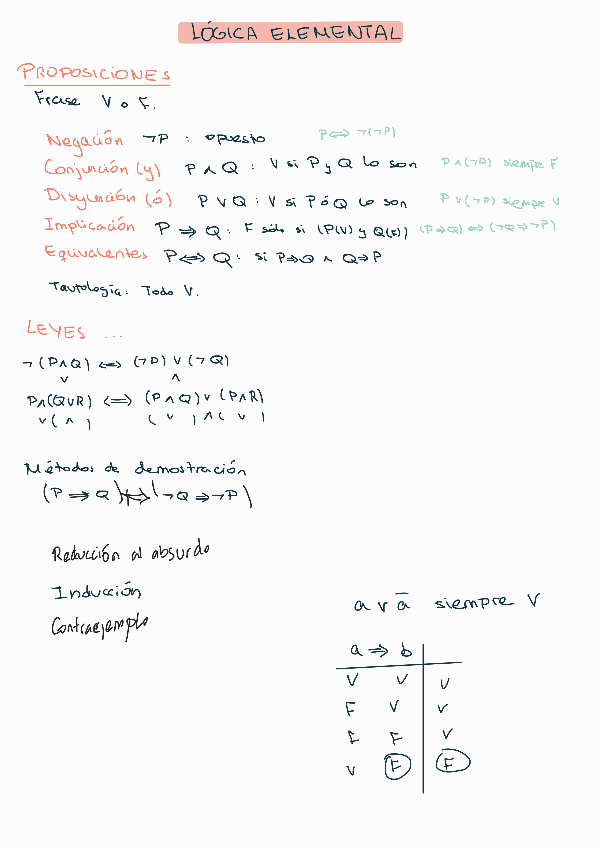 LÓGICA ELEMENTAL
PROPOSICIONES
Frase V o F.
Negación ¬P : opuesto P⇔¬(¬P)
Conjunción (y) P ∧ Q : V si P y Q lo son P∧(¬P) siempre F
Disyunción (ó) P ∨ Q : V si P ó Q lo son P∨(¬P) siempre V
Implicación P ⇒ Q : F sólo si (P(V) y Q(F)) (P⇒Q) ⇔ (¬Q⇒¬P)
Equivalentes P⇔Q : si P⇒Q ∧ Q⇒P
Tautología: Todo V.
LEYES ...
¬(P∧Q) ⇔ (¬P) ∨ (¬Q)
∨ ∧
P∧(Q∨R) ⇔ (P∧Q)∨(P∧R)
∨( ∧ ) ( ∨ ) ∧ ( ∨ )
Métodos de demostración
(P ⇒ Q)⇔(¬Q ⇒ ¬P)
Reducción al absurdo
Inducción
Contraejemplo
a ∨ a̅ siempre V
a ⇒ b
V V V
F V V
F F V
V F F